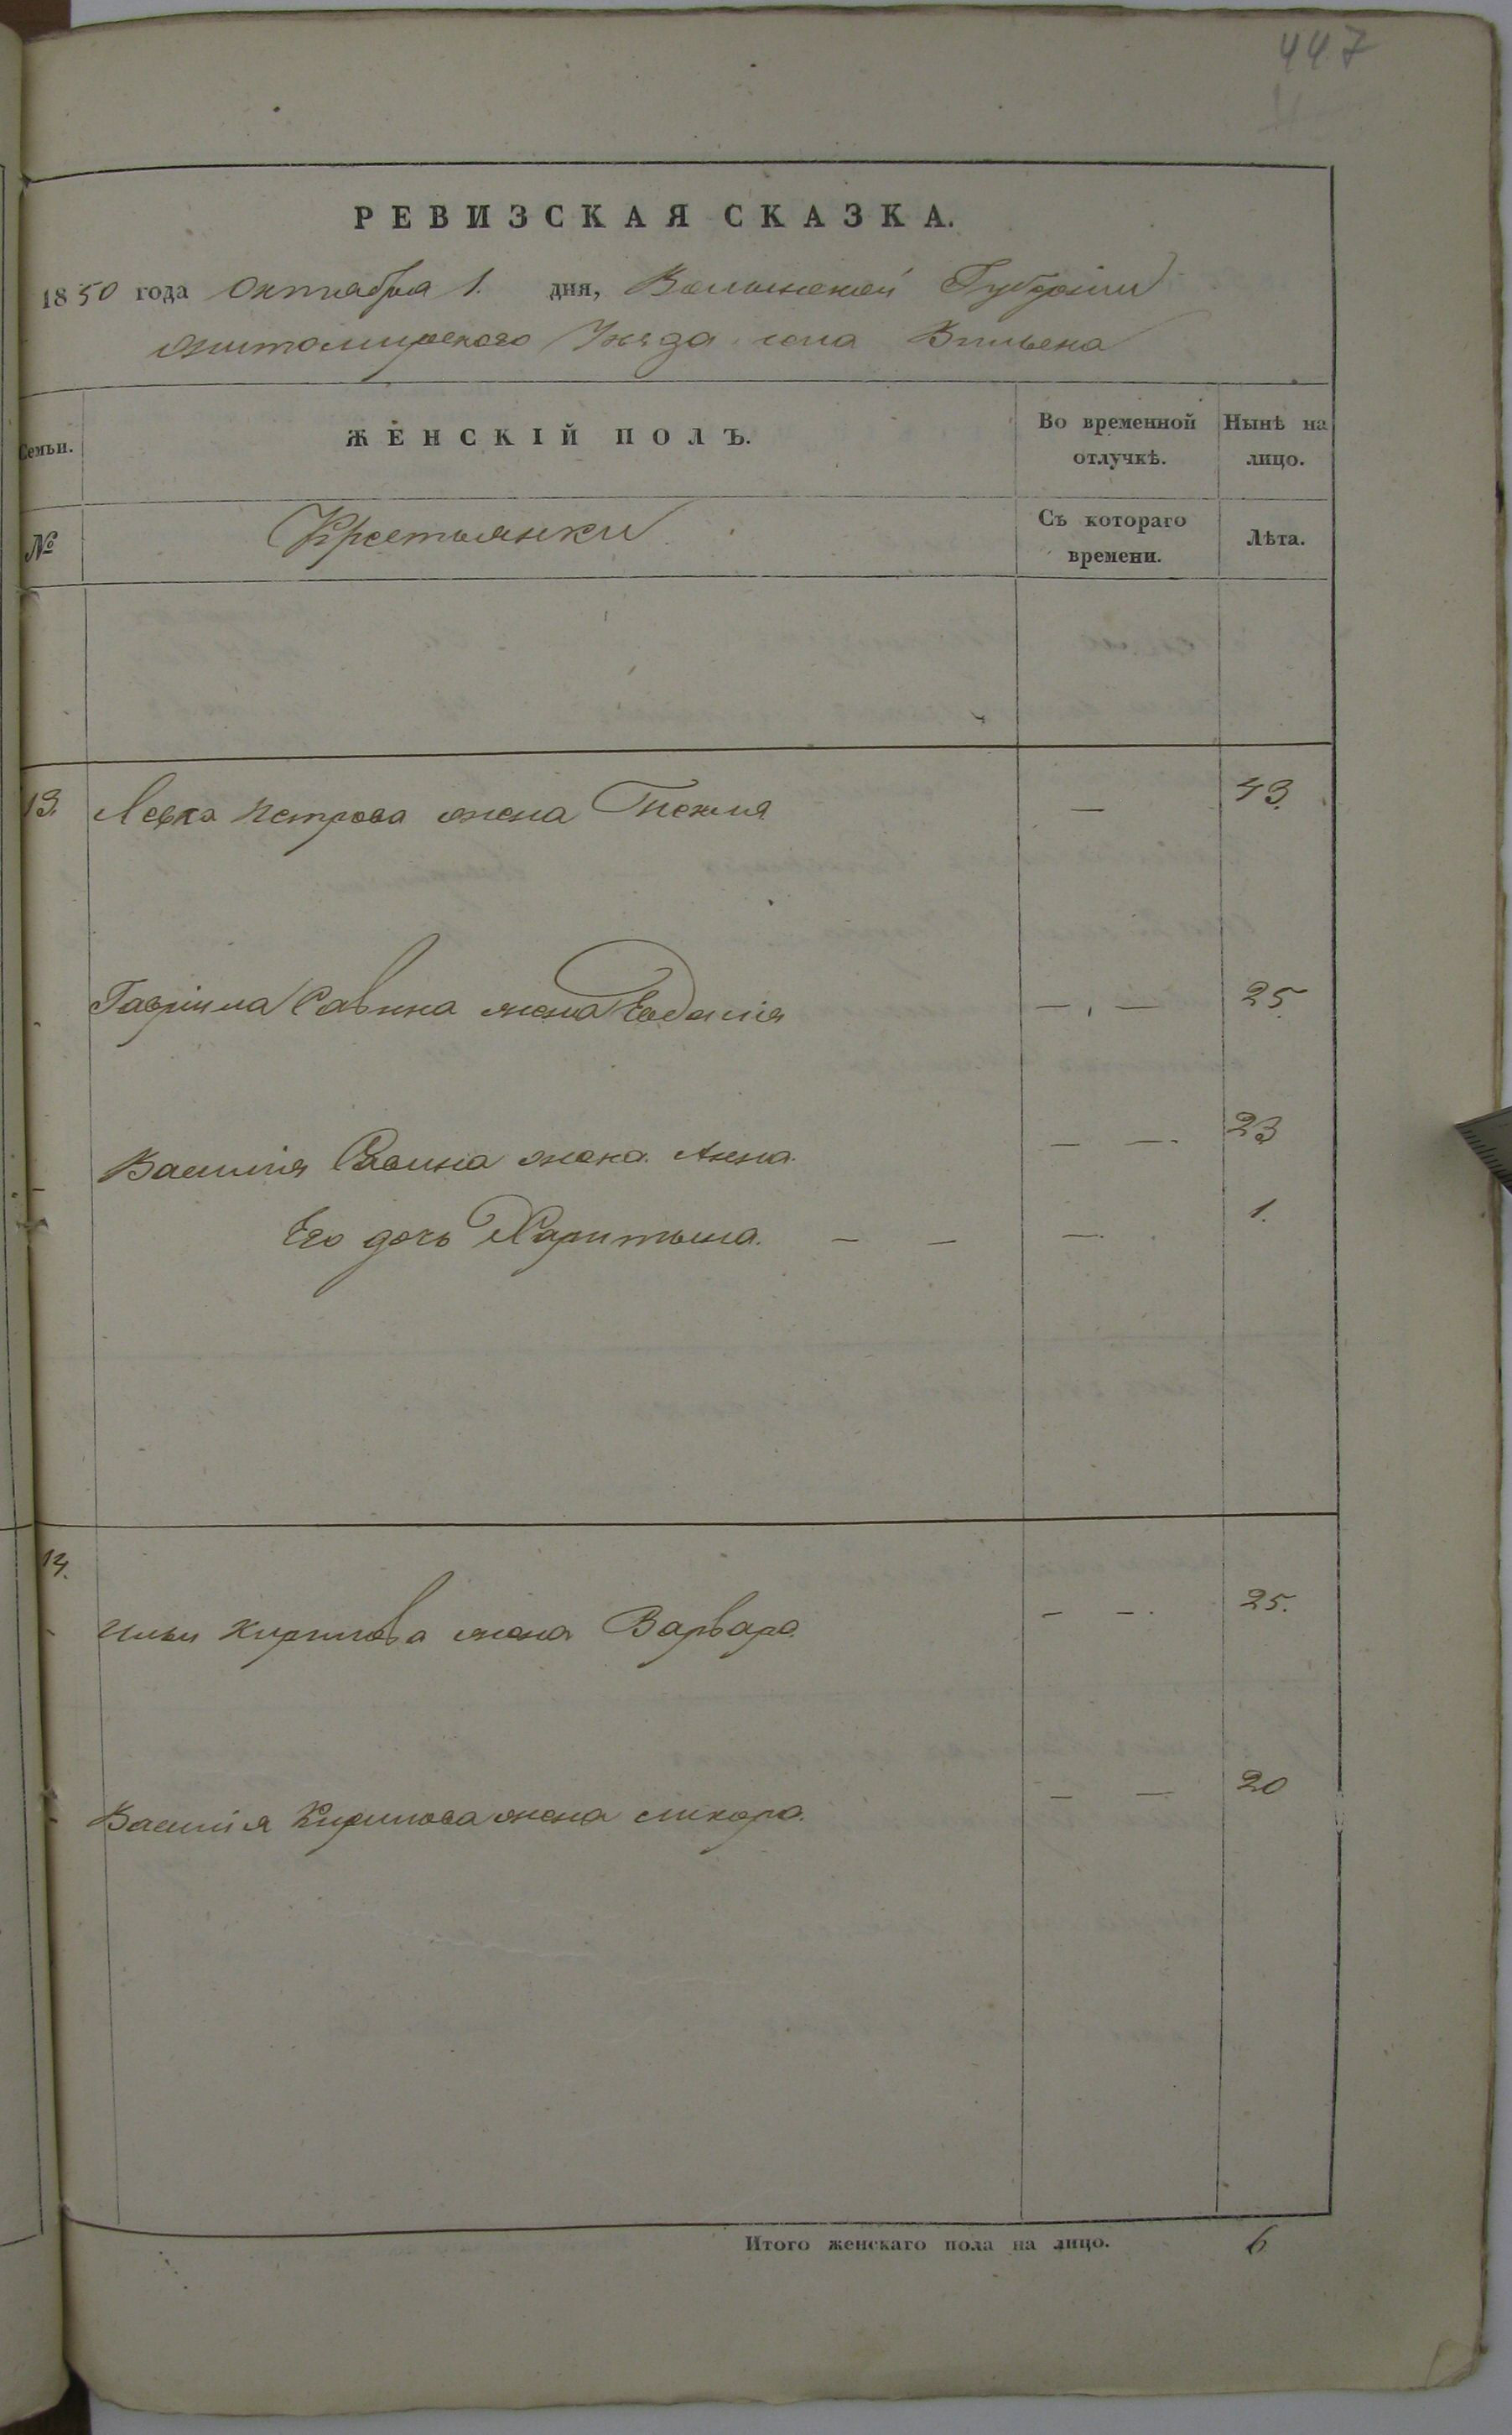 447
РЕВИЗСКАЯ СКАЗКА.
1850 года Октября 1. дня, Волынской Губернии
Житомирского Уезда села
Семьи.
ЖЕНСКІЙ ПОЛЪ.
Во временной отлучкѣ.
Нынѣ на лицо.
№
Крестьянки
Съ котораго времени.
Лѣта.
13. Левка Петрова жена — 43.
Гавріила Савина жена — — 25
Василія Савина жена Анна — — 23
Его дочь Харитына — — — 1.
14.
Ильи Кирилова жена Варвара — — 25.
Василія Кирилова жена — — 20
Итого женскаго пола на лицо. 6